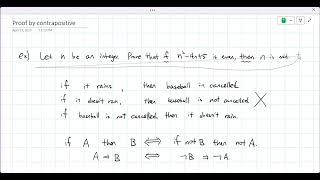 Proof by contrapositive
ex) Let n be an integer. Prove that if n²-4n+5 is even, then n is odd.
if it rains, then baseball is cancelled.
if it doesn't rain, then baseball is not cancelled X
if baseball is not cancelled then it doesn't rain.
if A then B ⟺ if not B then not A.
A ⇒ B ⟺ ¬B ⇒ ¬A